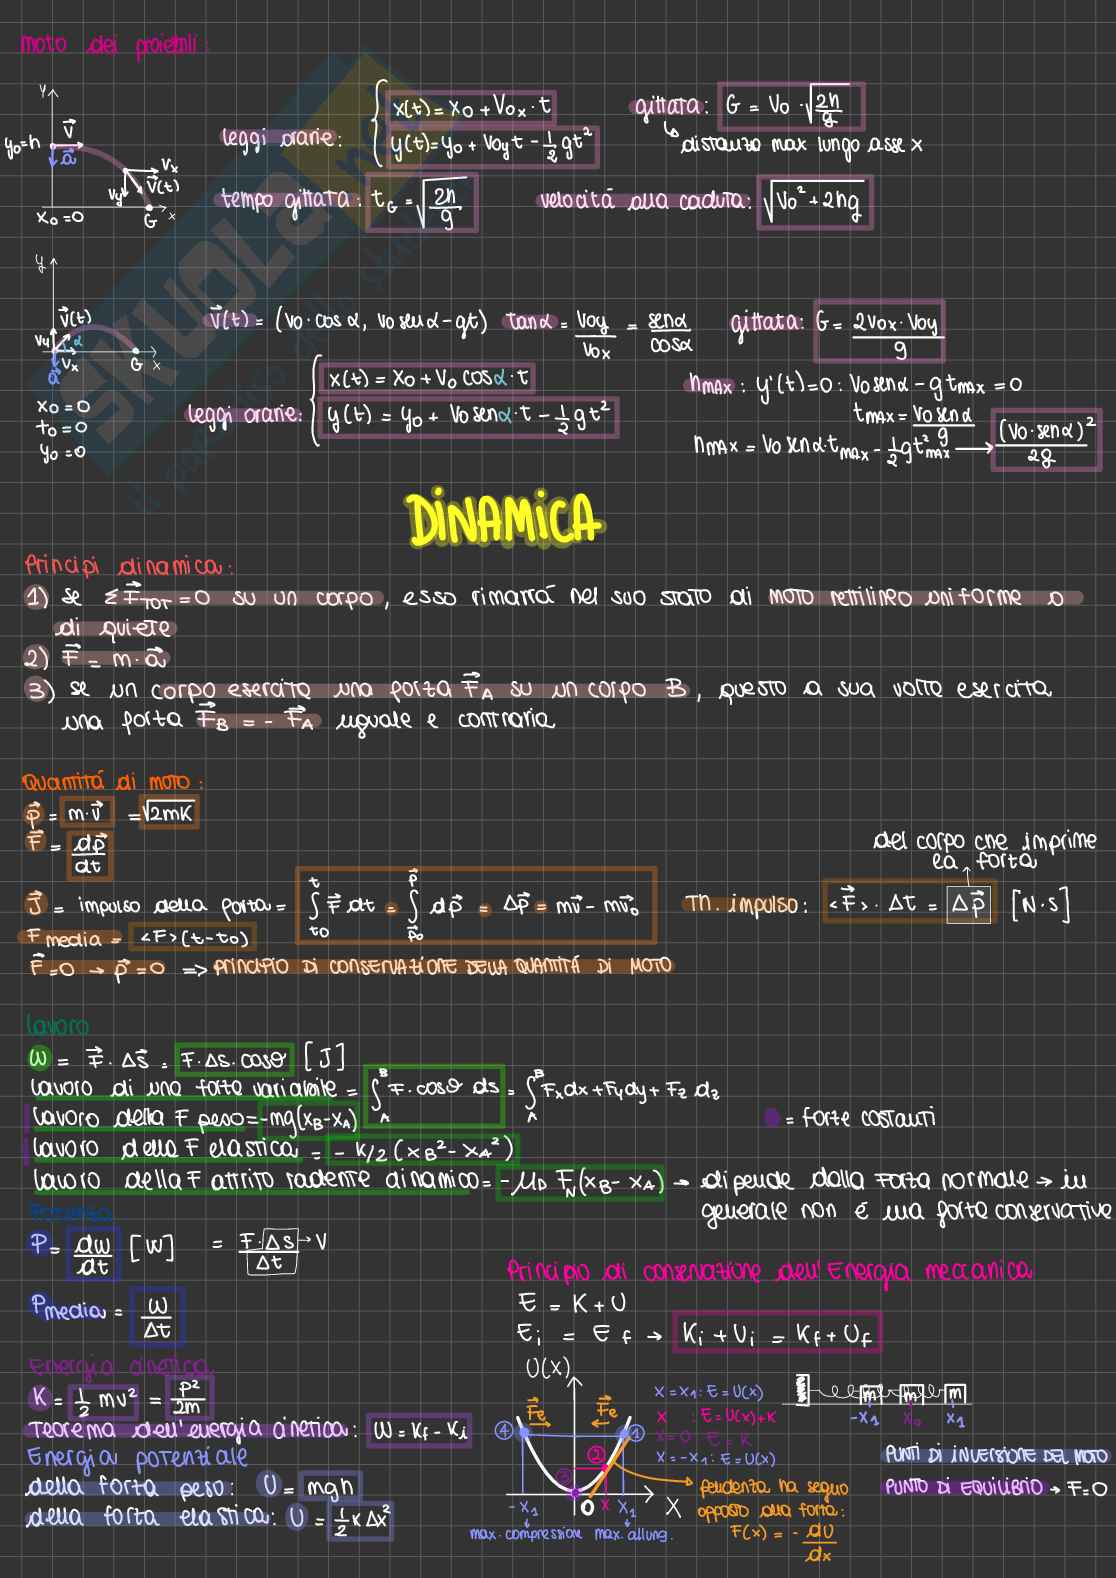 moto dei proiettili:
y
y₀=h
v⃗
a⃗
vₓ
v⃗(t)
v_y
x₀=0
G
x
leggi orarie:
x(t) = x₀ + v₀ₓ · t
y(t) = y₀ + v₀yt - ½gt²
gittata: G = v₀ · √(2h/g)
↳ distanza max lungo asse x
tempo gittata: t_G = √(2h/g)
velocità alla caduta: √(v₀² + 2hg)
y
v⃗(t)
v_y
α
vₓ
a⃗
G
x
x₀=0
t₀=0
y₀=0
v⃗(t) = (v₀·cosα, v₀senα-gt) tanα = v₀y/v₀ₓ = senα/cosα
gittata: G = 2v₀ₓ·v₀y/g
leggi orarie:
x(t) = x₀ + v₀cosα·t
y(t) = y₀ + v₀senα·t - ½gt²
hMAX: y'(t)=0: v₀senα - gtMAX = 0
tMAX = v₀senα/g
hMAX = v₀senα·tMAX - ½gt²MAX → (v₀·senα)²/2g
SKUOLA.net
DINAMICA
Principi dinamica:
1) se ΣF⃗TOT = 0 su un corpo, esso rimarrà nel suo stato di moto rettilineo uniforme o
di quiete
2) F⃗ = m·a⃗
3) se un corpo esercita una forza F⃗A su un corpo B, questo a sua volta esercita
una forza F⃗B = -F⃗A uguale e contraria
Quantità di moto:
p⃗ = m·v⃗ = √2mK
F⃗ = dp⃗/dt
del corpo che imprime
la forza
J⃗ = impulso della forza = ∫ₜ₀ᵗ F⃗dt = ∫p⃗₀^p⃗ dp⃗ = Δp⃗ = mv⃗ - mv⃗₀
Th. impulso: <F⃗>·Δt = Δp⃗ [N·s]
Fmedia = <F>(t-t₀)
F⃗=0 → p⃗=0 => PRINCIPIO DI CONSERVAZIONE DELLA QUANTITÀ DI MOTO
Lavoro
W = F⃗·Δs⃗ = F·Δs·cosθ [J]
Lavoro di una forza variabile = ∫_A^B F·cosθ ds = ∫_A^B Fₓdx+F_ydy+F_zd_z
Lavoro della F peso = -mg(x_B-x_A)
= forze costanti
Lavoro della F elastica = -K/2(x_B²-x_A²)
Lavoro della F attrito radente dinamico = -μ_D F_N(x_B-x_A) → dipende dalla forza normale → in
generale non è una forza conservativa
Potenza
P = dW/dt [W] = F·Δs/Δt → v
Pmedia = W/Δt
Energia cinetica
K = ½mv² = p²/2m
Teorema dell'energia cinetica: W = K_f - K_i
Energia potenziale
della forza peso: U = mgh
della forza elastica: U = ½KΔx²
Principio di conservazione dell'Energia meccanica
E = K + U
E_i = E_f → K_i + U_i = K_f + U_f
U(x)
F⃗e
F⃗e
④
①
②
③
-x₁
0
x
x₁
X
max. compressione
max. allung.
x = x₁: E = U(x)
x : E = U(x)+K
x = 0 E = K
x = -x₁: E = U(x)
pendenza ha segno
opposto alla forza:
F(x) = -dU/dx
m
m
m
-x₁
x₀
x₁
PUNTI DI INVERSIONE DEL MOTO
PUNTO DI EQUILIBRIO → F=0